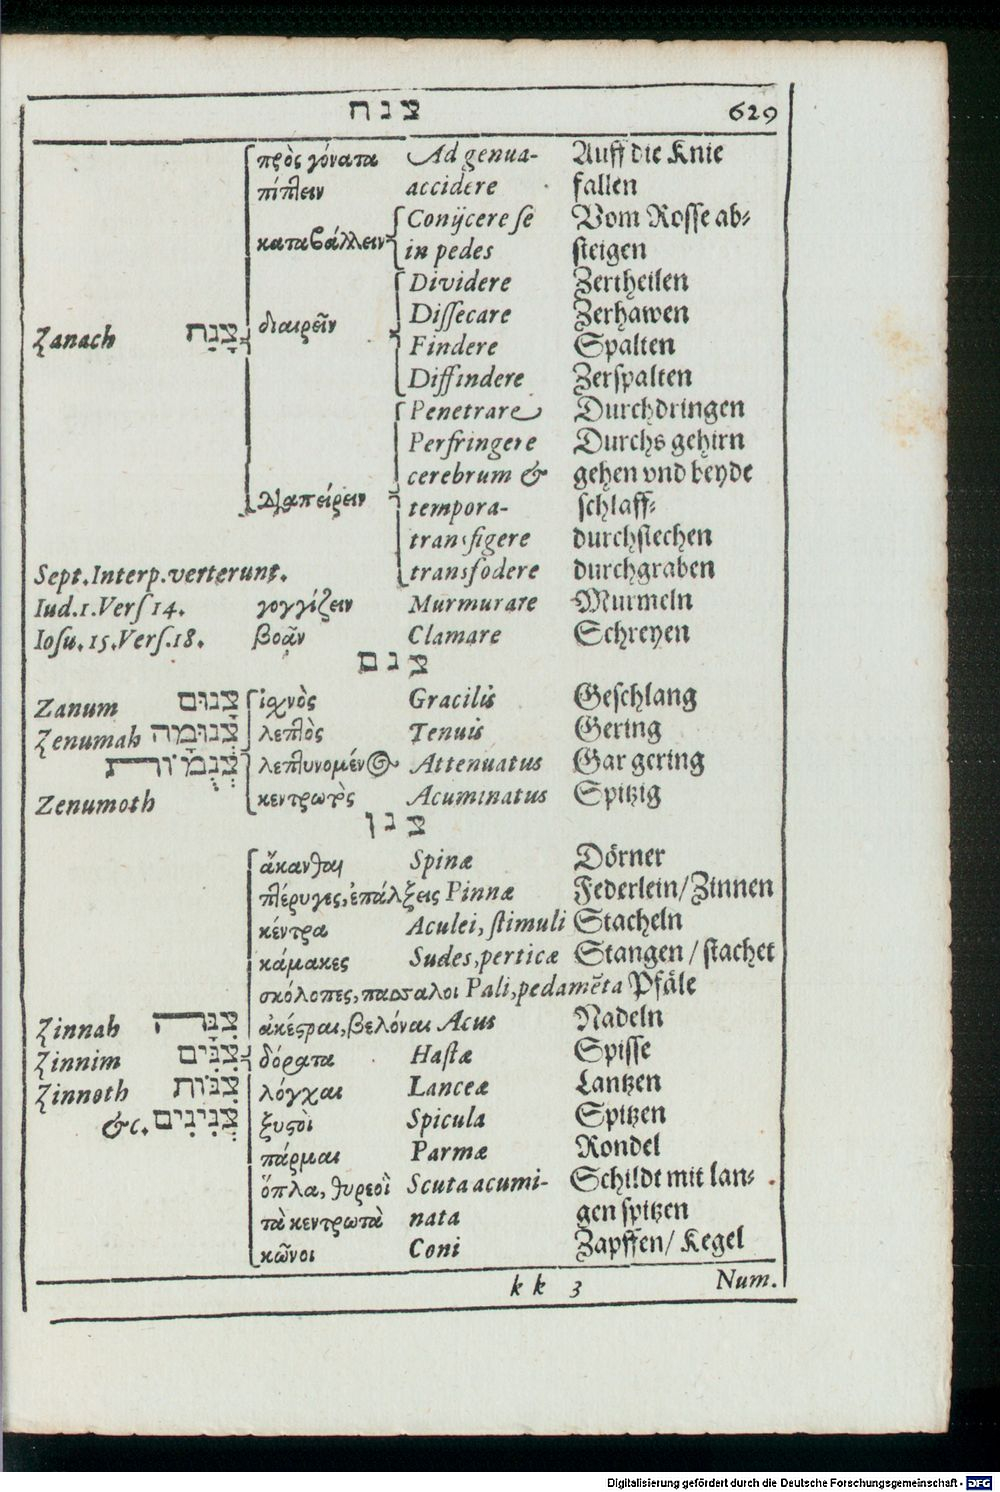 צנח 629
πρὸς γόνατα Ad genua- Auff die Knie
πίπτειν accidere fallen
καταβάλλειν Conijcere se Vom Rosse ab-
in pedes steigen
Dividere Zertheilen
διαιρεῖν Dissecare Zerhawen
Zanach צָנַח Findere Spalten
Diffindere Zerspalten
Penetrare Durchdringen
Perfringere Durchs gehirn
cerebrum & gehen vnd beyde
διαπείρειν tempora- schlaff-
transfigere durchstechen
Sept. Interp. verterunt. transfodere durchgraben
Iud. 1. Vers 14. γογγίζειν Murmurare Murmeln
Iosu. 15. Vers. 18. βοᾷν Clamare Schreyen
צנם
Zanum צָנוּם ἰχνὸς Gracilis Geschlang
Zenumah צְנוּמָה λεπτὸς Tenuis Gering
צְנֻמוֹת λεπτυνομένος Attenuatus Gar gering
Zenumoth κεντρωτὸς Acuminatus Spitzig
צנן
ἄκανθαι Spinæ Dörner
πτέρυγες, ἐπάλξεις Pinnæ Federlein / Zinnen
κέντρα Aculei, stimuli Stacheln
κάμακες Sudes, perticæ Stangen / stachet
σκόλοπες, πασσαλοι Pali, pedamēta Pfäle
Zinnah צִנָּה ἀκέστραι, βελόναι Acus Nadeln
Zinnim צִנִּים δόρατα Hastæ Spisse
Zinnoth צִנּוֹת λόγχαι Lanceæ Lantzen
&c. צְנִינִים ξυστοὶ Spicula Spitzen
πάρμαι Parmæ Rondel
ὅπλα, θυρεοὶ Scuta acumi- Schildt mit lan-
τὰ κεντρωτὰ nata gen spitzen
κῶνοι Coni Zapffen / Kegel
kk 3 Num.
Digitalisierung gefördert durch die Deutsche Forschungsgemeinschaft - DFG